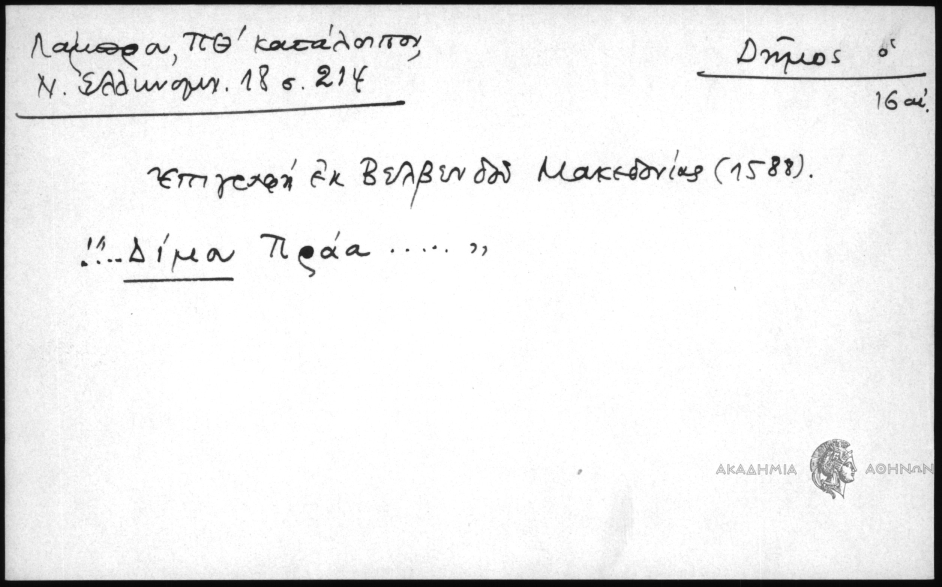 Λάμπρα, ΠΘ' κατάλοιπον,
Ν. Ἑλληνομν. 18 σ. 214
Δῆμος ὁ
16 αἰ.
Ἐπιγραφή ἐκ Βελβενδοῦ Μακεδονίας (1588).
"..Δίμα Πράα ..... "
ΑΚΑΔΗΜΙΑ ΑΘΗΝΩΝ